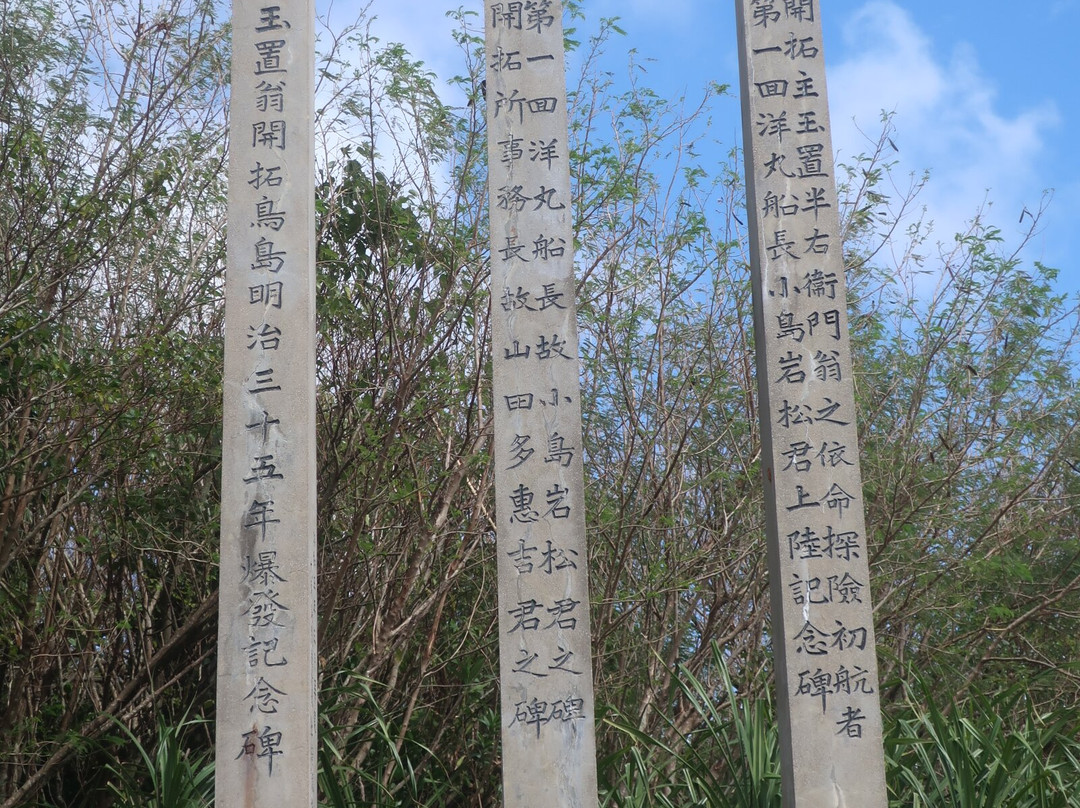 開拓主玉置半右衛門翁之依命探險初航者
第一回洋丸船長小島岩松君上陸記念碑
第一回洋丸船長故小島岩松君之碑
開拓所事務長故山田多惠吉君之碑
玉置翁開拓鳥島明治三十五年爆發記念碑